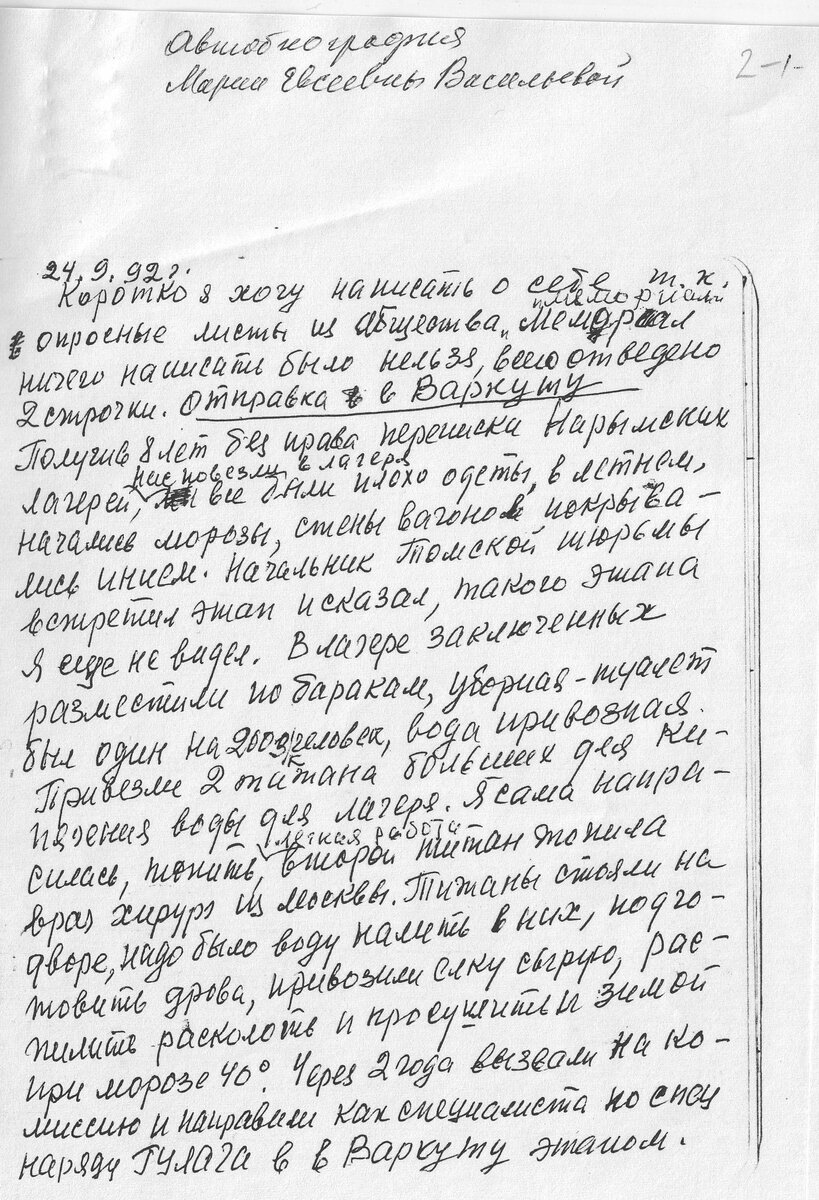 Автобиография
Марии Евсеевны Васильевой
2-1-
24.9.92г.
Коротко я хочу написать о себе т.к.
"Мемориал"
в опросные листы из общества "Мемориал
ничего написать было нельзя, всего отведено
2 строчки. Отправка в в Варкуту
Получив 8 лет без права переписки Нарымских
нас повезли в лагеря
лагерей, мы все были плохо одеты, в летнем,
начались морозы, стены вагонов покрыва-
лись инием. Начальник Томской тюрьмы
встретил этап и сказал, такого этапа
я еще не видел. В лагере заключенных
разместили по баракам, уборная-туалет
был один на 200 человек, вода привозная.
Привезли 2 титана больших для ки-
пячения воды для лагеря. Я сама напро-
легкая работа
силась, топить, второй титан топила
врач хирург из Москвы. Титаны стояли на
дворе, надо было воду налить в них, подго-
товить дрова, привозили елку сырую, рас-
пилить расколоть и просушить и зимой
при морозе 40°. Через 2 года вызвали на ко-
миссию и направили как специалиста по спец
наряду ГУЛАГА в в Варкуту этапом.